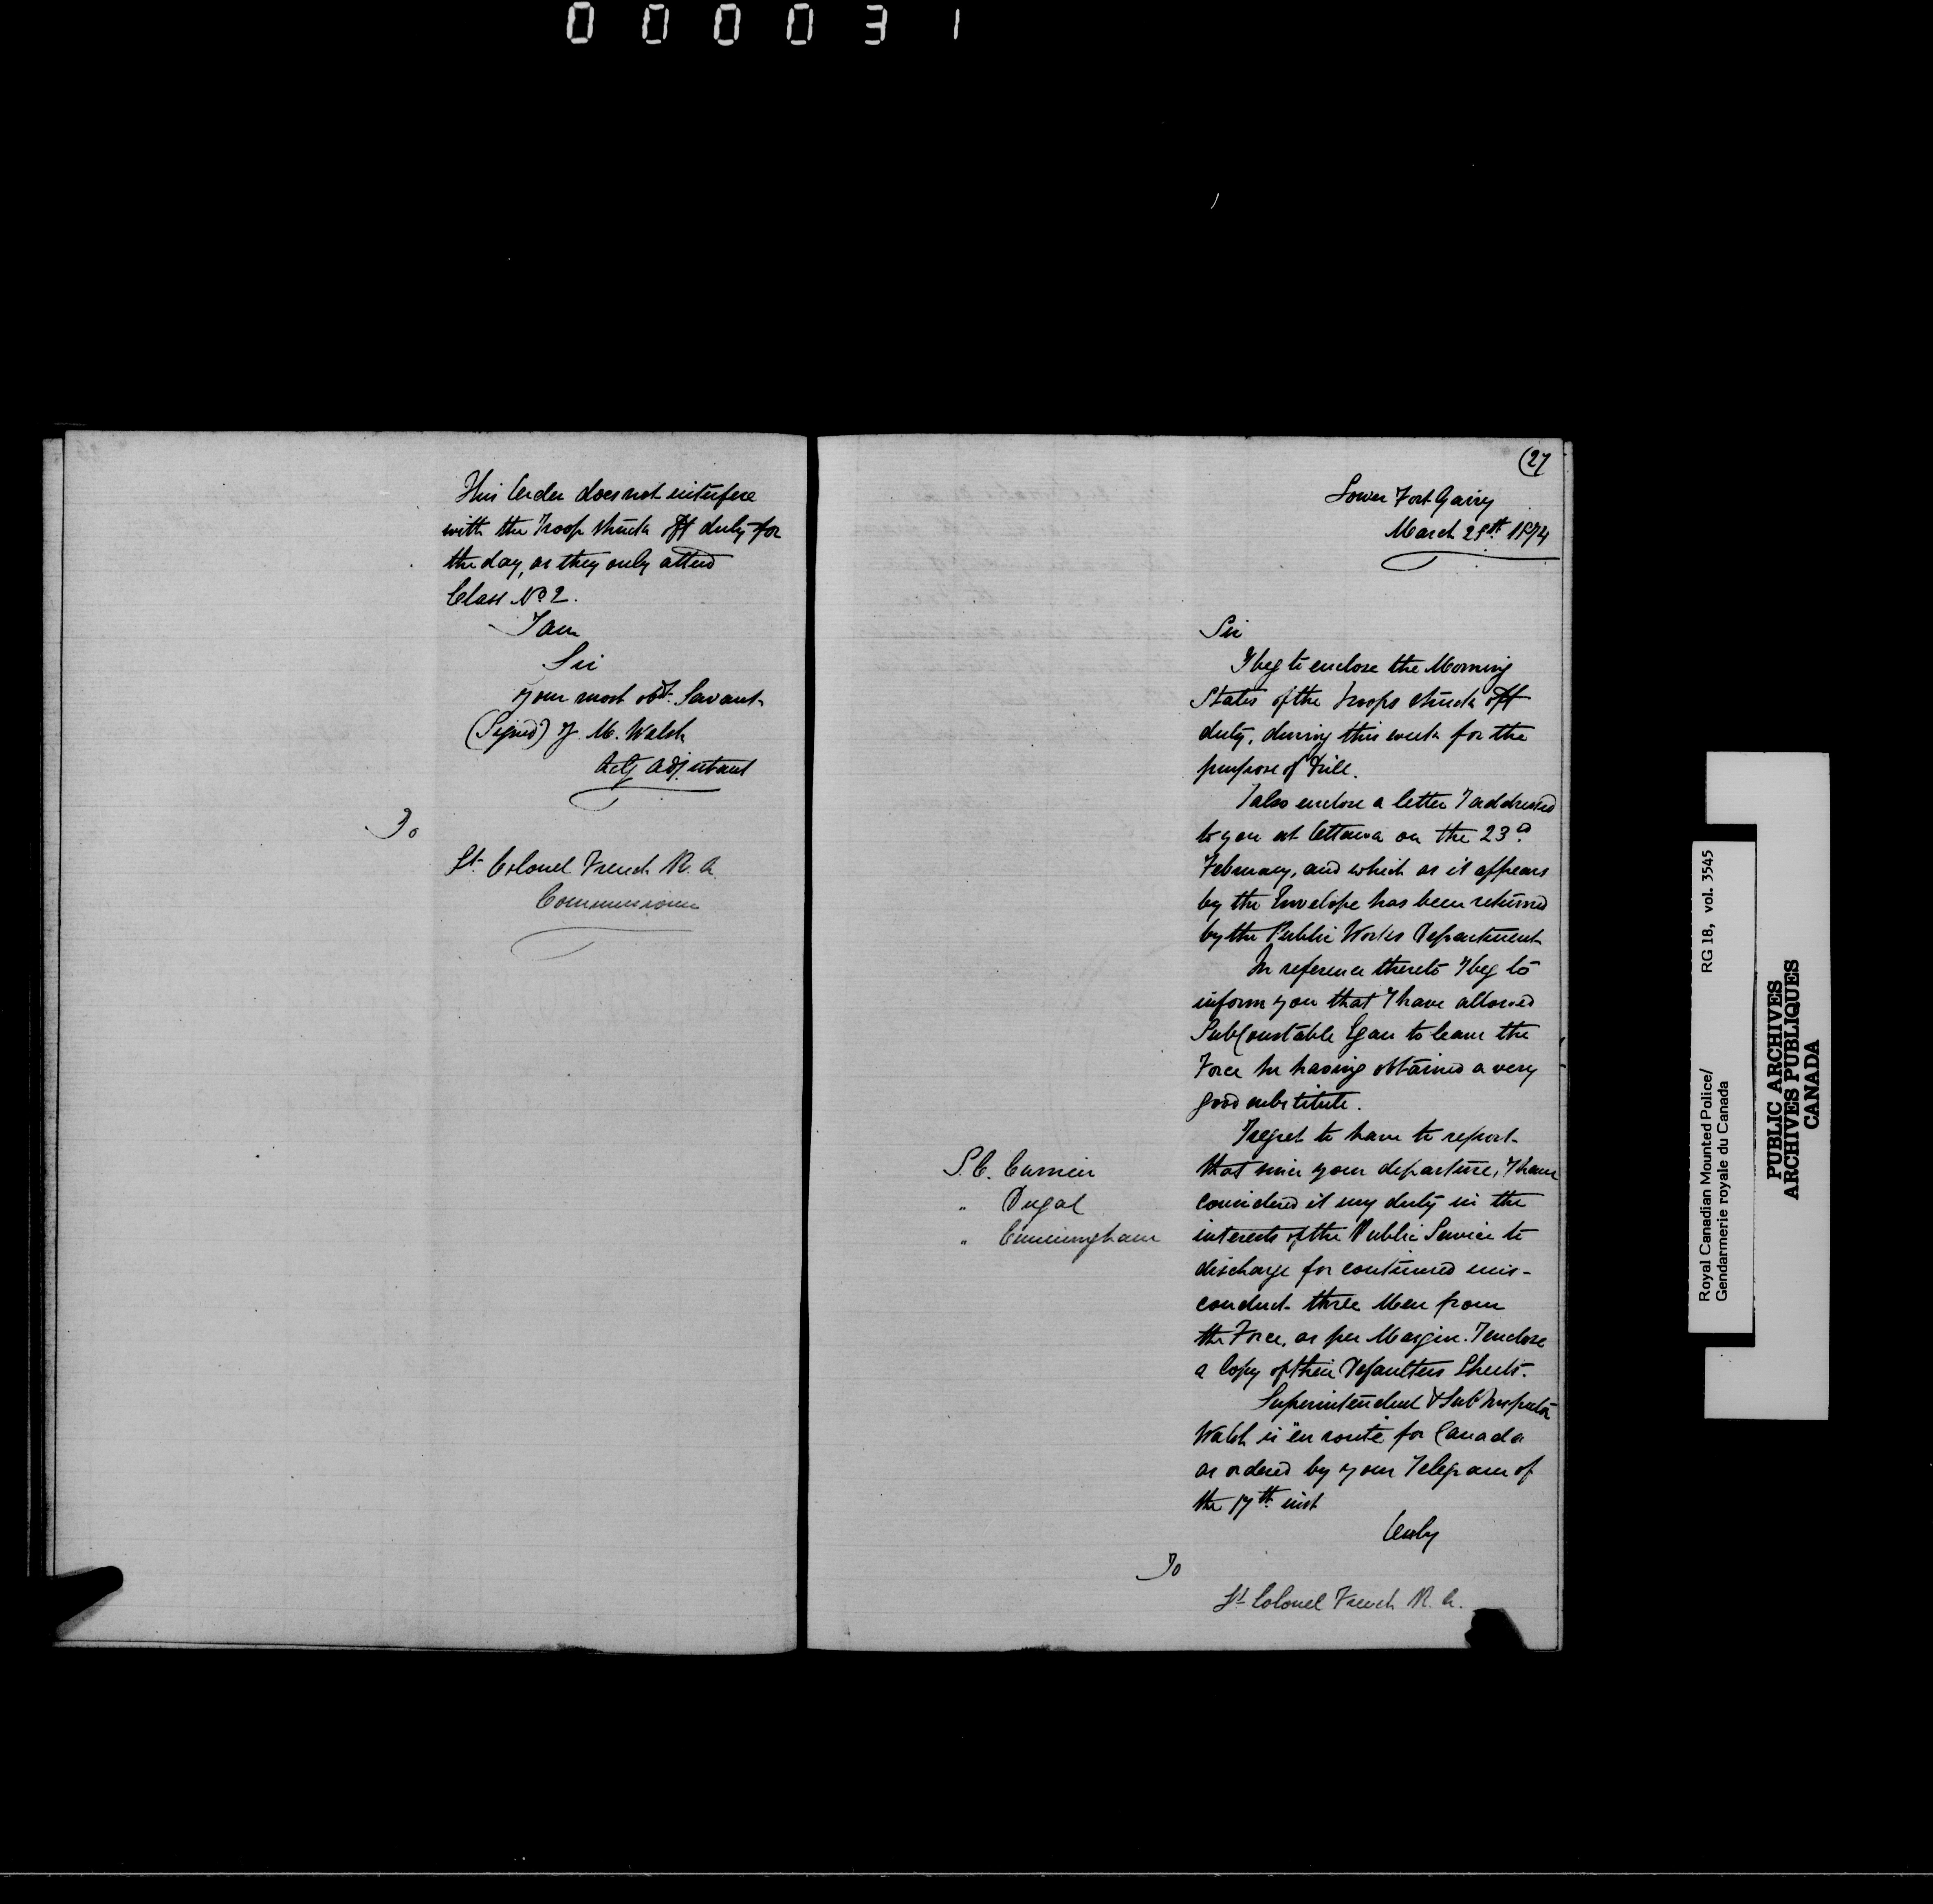 000031
This Order does not interfere
with the Troop struck off duty for
the day, as they only attend
Class No 2.
I am
Sir
your most obt. Servant
(Signed) J. M. Walsh
Actg Adjutant
To
Lt. Colonel French R. A.
Commissioner
(27
Lower Fort Garry
March 25th 1874
Sir
I beg to enclose the Morning
States of the Troops struck off
duty, during this week for the
purpose of Drill.
I also enclose a letter I addressed
to you at Ottawa on the 23d
February, and which as it appears
by the Envelope has been returned
by the Public Works Department
In reference thereto I beg to
inform you that I have allowed
SubConstable Egan to leave the
Force he having obtained a very
good substitute.
I regret to have to report
S. C. Currier
" Dugal
" Cunningham
that since your departure, I have
considered it my duty in the
interests of the Public Service to
discharge for continued mis-
conduct three Men from
the Force, as per Margin. I enclose
a Copy of their Defaulters Sheets.
Superintendent & Sub Inspector
Walsh is "en route" for Canada
as ordered by your Telegram of
the 17th inst
To
Lt Colonel French R. A.
Royal Canadian Mounted Police/ RG 18, vol. 3545
Gendarmerie royale du Canada
PUBLIC ARCHIVES
ARCHIVES PUBLIQUES
CANADA